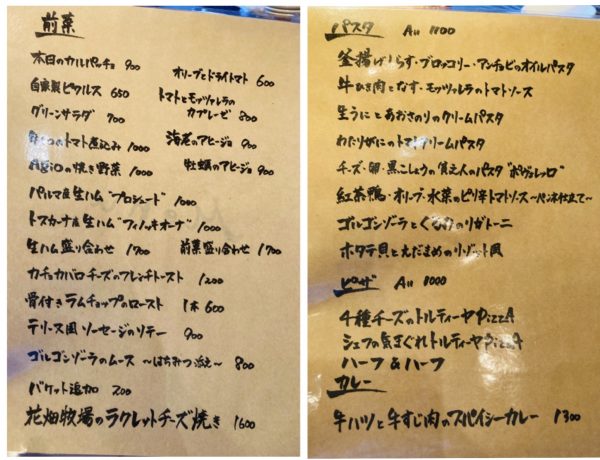 前菜
本日のカルパッチョ 900
オリーブとドライトマト 600
自家製ピクルス 650
トマトとモッツァレラの
カプレーゼ 800
グリーンサラダ 700
のトマト煮込み 1000
海老のアヒージョ 900
の焼き野菜 1000
牡蠣のアヒージョ 900
パルマ産生ハム"プロシュート" 1000
トスカーナ産生ハム"フィノッキオーナ" 1000
生ハム盛り合わせ 1700
前菜盛り合わせ 1700
カチョカバロチーズのフレンチトースト 1200
骨付きラムチョップのロースト 1本600
ソーセージのソテー 900
ゴルゴンゾーラのムース 〜はちみつ添え〜 800
バケット追加 200
花畑牧場のラクレットチーズ焼き 1600
パスタ All 1100
釜揚げしらす・ブロッコリー・アンチョビのオイルパスタ
牛ひき肉となす・モッツァレラのトマトソース
生うにとあおさのりのクリームパスタ
わたりがにのトマトクリームパスタ
チーズ・卵・黒こしょうの貧乏人のパスタ"ポヴェレッロ"
紅茶鴨・オリーブ・水菜のピリ辛トマトソース〜ペンネ仕立て〜
ゴルゴンゾーラとくるみのリガトーニ
ホタテ貝とえだまめのリゾット風
ピザ All 1000
4種チーズのトルティーヤPizzA
シェフの気まぐれトルティーヤPizzA
ハーフ&ハーフ
カレー
牛ハツと牛すじ肉のスパイシーカレー 1300